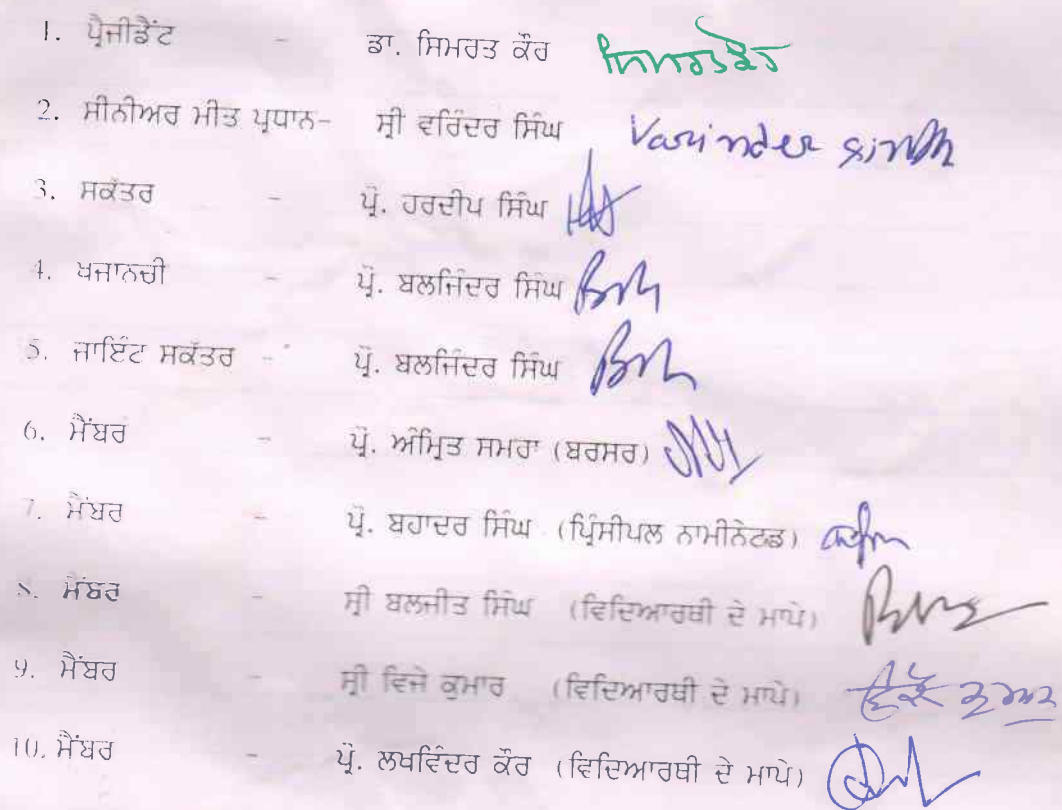 1. ਪ੍ਰੈਜੀਡੈਂਟ - ਡਾ. ਸਿਮਰਤ ਕੌਰ ਸਿਮਰਤ ਕੌਰ
2. ਸੀਨੀਅਰ ਮੀਤ ਪ੍ਰਧਾਨ- ਸ੍ਰੀ ਵਰਿੰਦਰ ਸਿੰਘ Varinder Singh
3. ਸਕੱਤਰ - ਪ੍ਰੋ. ਹਰਦੀਪ ਸਿੰਘ
4. ਖਜਾਨਚੀ - ਪ੍ਰੋ. ਬਲਜਿੰਦਰ ਸਿੰਘ
5. ਜਾਇੰਟ ਸਕੱਤਰ - ਪ੍ਰੋ. ਬਲਜਿੰਦਰ ਸਿੰਘ
6. ਮੈਂਬਰ - ਪ੍ਰੋ. ਅੰਮ੍ਰਿਤ ਸਮਰਾ (ਬਰਸਰ)
7. ਮੈਂਬਰ - ਪ੍ਰੋ. ਬਹਾਦਰ ਸਿੰਘ (ਪ੍ਰਿੰਸੀਪਲ ਨਾਮੀਨੇਟਡ)
8. ਮੈਂਬਰ - ਸ੍ਰੀ ਬਲਜੀਤ ਸਿੰਘ (ਵਿਦਿਆਰਥੀ ਦੇ ਮਾਪੇ)
9. ਮੈਂਬਰ - ਸ੍ਰੀ ਵਿਜੇ ਕੁਮਾਰ (ਵਿਦਿਆਰਥੀ ਦੇ ਮਾਪੇ) ਕੁਮਾਰ
10. ਮੈਂਬਰ - ਪ੍ਰੋ. ਲਖਵਿੰਦਰ ਕੌਰ (ਵਿਦਿਆਰਥੀ ਦੇ ਮਾਪੇ)